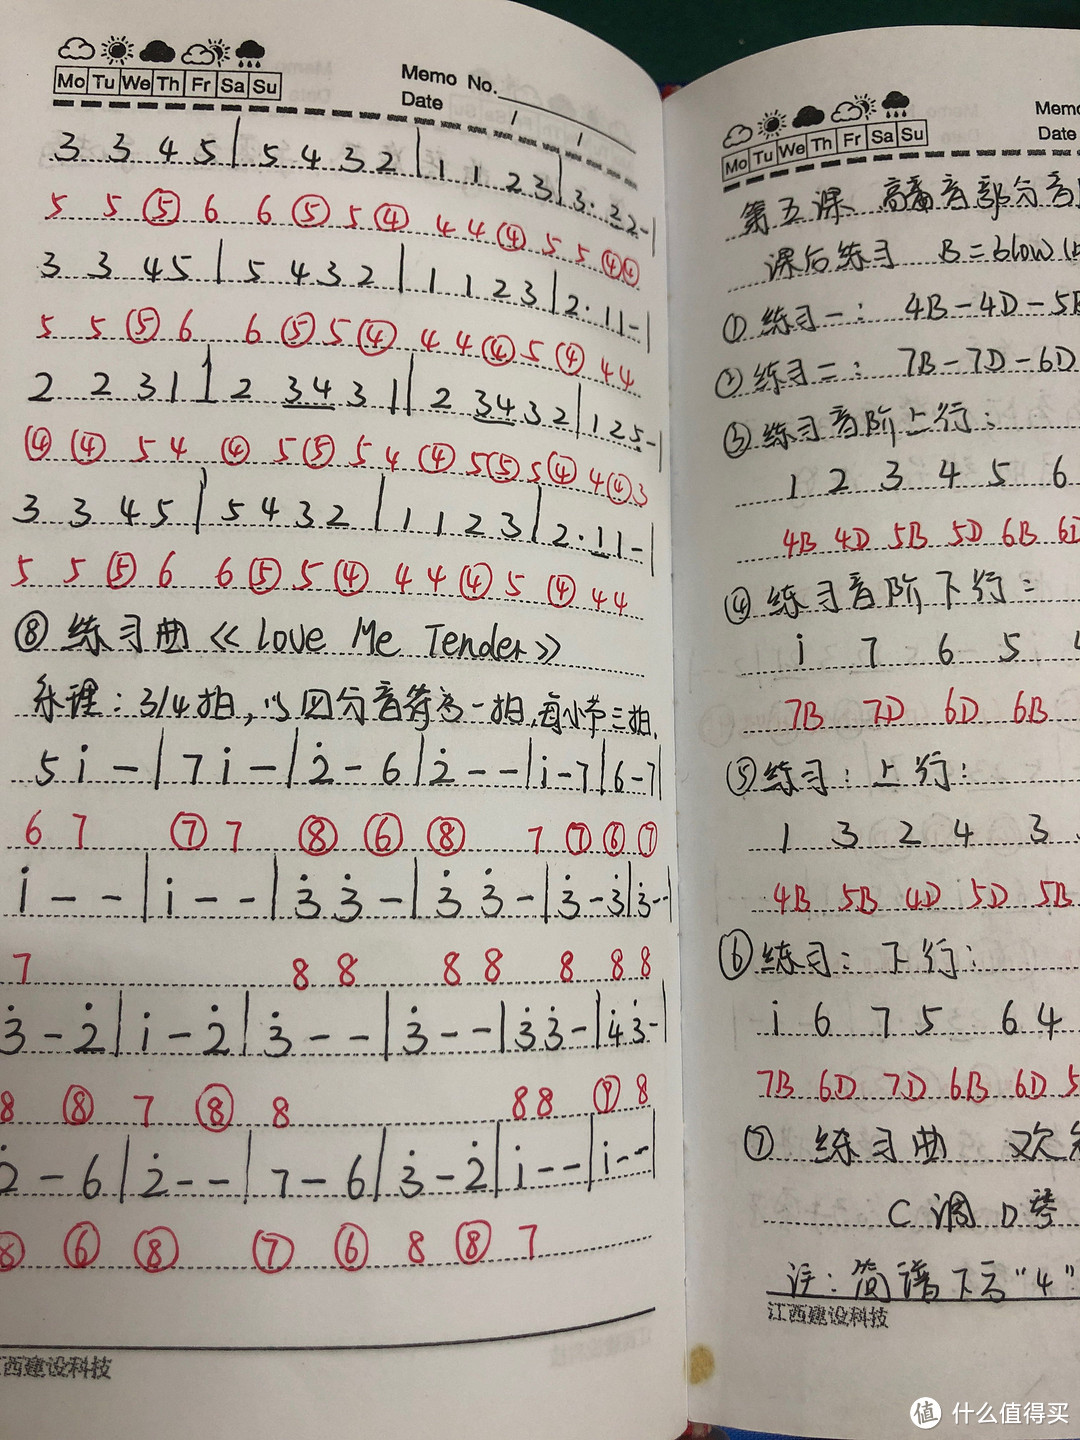 Mo Tu We Th Fr Sa Su
Memo No.
Date / /
3 3 4 5 | 5 4 3 2 | 1 1 2 3 | 3· 2 2 - |
5 5 ⑤ 6 6 ⑤ 5 ④ 4 4 ④ 5 5 ④④
3 3 4 5 | 5 4 3 2 | 1 1 2 3 | 2· 1 1 - |
5 5 ⑤ 6 6 ⑤ 5 ④ 4 4 ④ 5 ④ 4 4
2 2 3 1 | 2 3 4 3 1 | 2 3 4 3 2 | 1 2 5 - |
④ ④ 5 4 ④ 5 ⑤ 5 4 ④ 5 ⑤ 5 ④ 4 ④ 3
3 3 4 5 | 5 4 3 2 | 1 1 2 3 | 2· 1 1 - |
5 5 ⑤ 6 6 ⑤ 5 ④ 4 4 ④ 5 ④ 4 4
⑧ 练习曲《Love Me Tender》
乐理：3/4拍，以四分音符为一拍，每小节三拍.
5 i̇ - | 7 i̇ - | 2̇ - 6 | 2̇ - - | i̇ - 7 | 6 - 7 |
6 7 ⑦ 7 ⑧ ⑥ ⑧ 7 ⑦ ⑥ ⑦
i̇ - - | i̇ - - | 3̇ 3̇ - | 3̇ 3̇ - | 3̇ - 3̇ | 3̇ - - |
7 8 8 8 8 8 8 8
3̇ - 2̇ | i̇ - 2̇ | 3̇ - - | 3̇ - - | 3̇ 3̇ - | 4̇ 3̇ - |
8 ⑧ 7 ⑧ 8 8 8 ⑨ 8
2̇ - 6 | 2̇ - - | 7 - 6 | 3̇ - 2̇ | i̇ - - | i̇ - - |
⑧ ⑥ ⑧ ⑦ ⑥ 8 ⑧ 7
西建设科技
Mo Tu We Th Fr Sa Su
Memo
Date
第五课 高音部分音
课后练习 B=blow
① 练习一： 4B-4D-5B
② 练习二： 7B-7D-6D
③ 练习音阶上行：
1 2 3 4 5 6
4B 4D 5B 5D 6B 6D
④ 练习音阶下行：
i̇ 7 6 5 4
7B 7D 6D 6B
⑤ 练习：上行：
1 3 2 4 3
4B 5B 4D 5D 5B
⑥ 练习：下行：
i̇ 6 7 5 6 4
7B 6D 7D 6B 6D 5
⑦ 练习曲 欢
C调 D琴
注：简谱下方“4”
江西建设科技
值 什么值得买